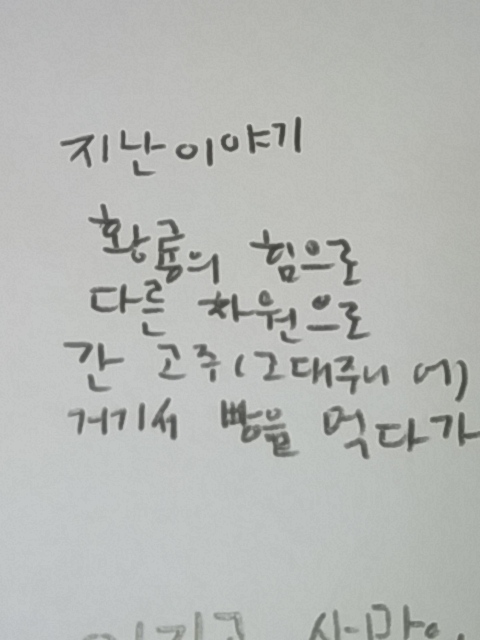 지난이야기
황룡의 힘으로
다른 차원으로
간 고주(그대주니 어)
거기서 빵을 먹다가